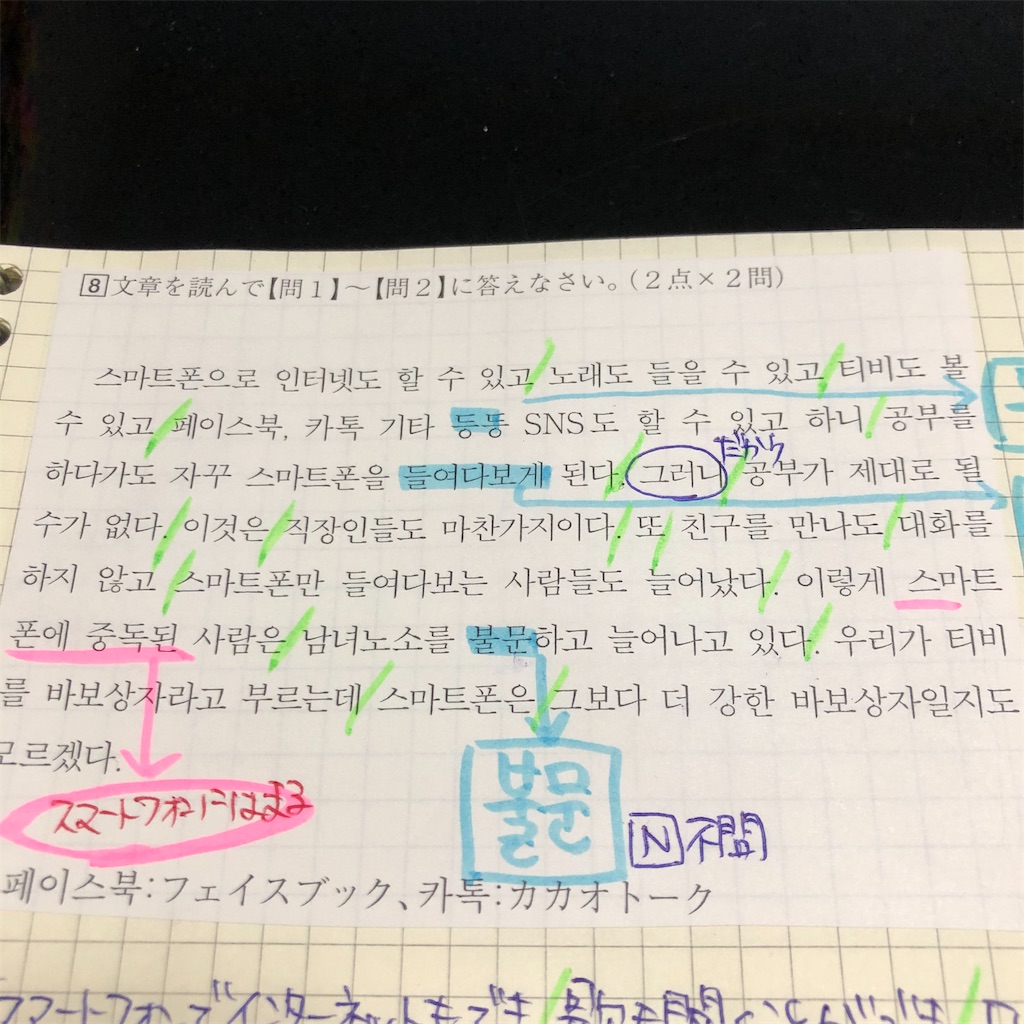 8 文章を読んで【問1】～【問2】に答えなさい。(2点×2問)
스마트폰으로 인터넷도 할 수 있고 노래도 들을 수 있고 티비도 볼
수 있고 페이스북, 카톡 기타 등등 SNS도 할 수 있고 하니 공부를
だから
하다가도 자꾸 스마트폰을 들여다보게 된다. 그러니 공부가 제대로 될
수가 없다. 이것은 직장인들도 마찬가지이다. 또 친구를 만나도 대화를
하지 않고 스마트폰만 들여다보는 사람들도 늘어났다. 이렇게 스마트
폰에 중독된 사람은 남녀노소를 불문하고 늘어나고 있다. 우리가 티비
를 바보상자라고 부르는데 스마트폰은 그보다 더 강한 바보상자일지도
모르겠다.
スマートフォンにはまる
불문
N 不問
페이스북:フェイスブック、카톡:カカオトーク
スマートフォンでインターネットもでき